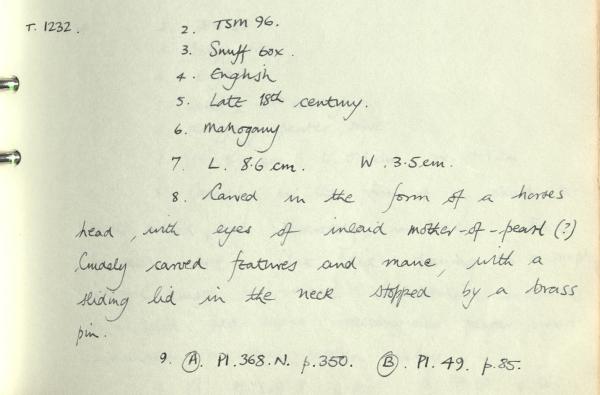 T. 1232. 2. TSM 96.
3. Snuff box.
4. English
5. Late 18th century.
6. Mahogany
7. L. 8.6 cm. W. 3.5 cm.
8. Carved in the form of a horses
head, with eyes of inlaid mother-of-pearl (?)
Crudely carved features and mane, with a
sliding lid in the neck stopped by a brass
pin.
9. (A). Pl. 368. N. p. 350. (B). Pl. 49. p. 85.